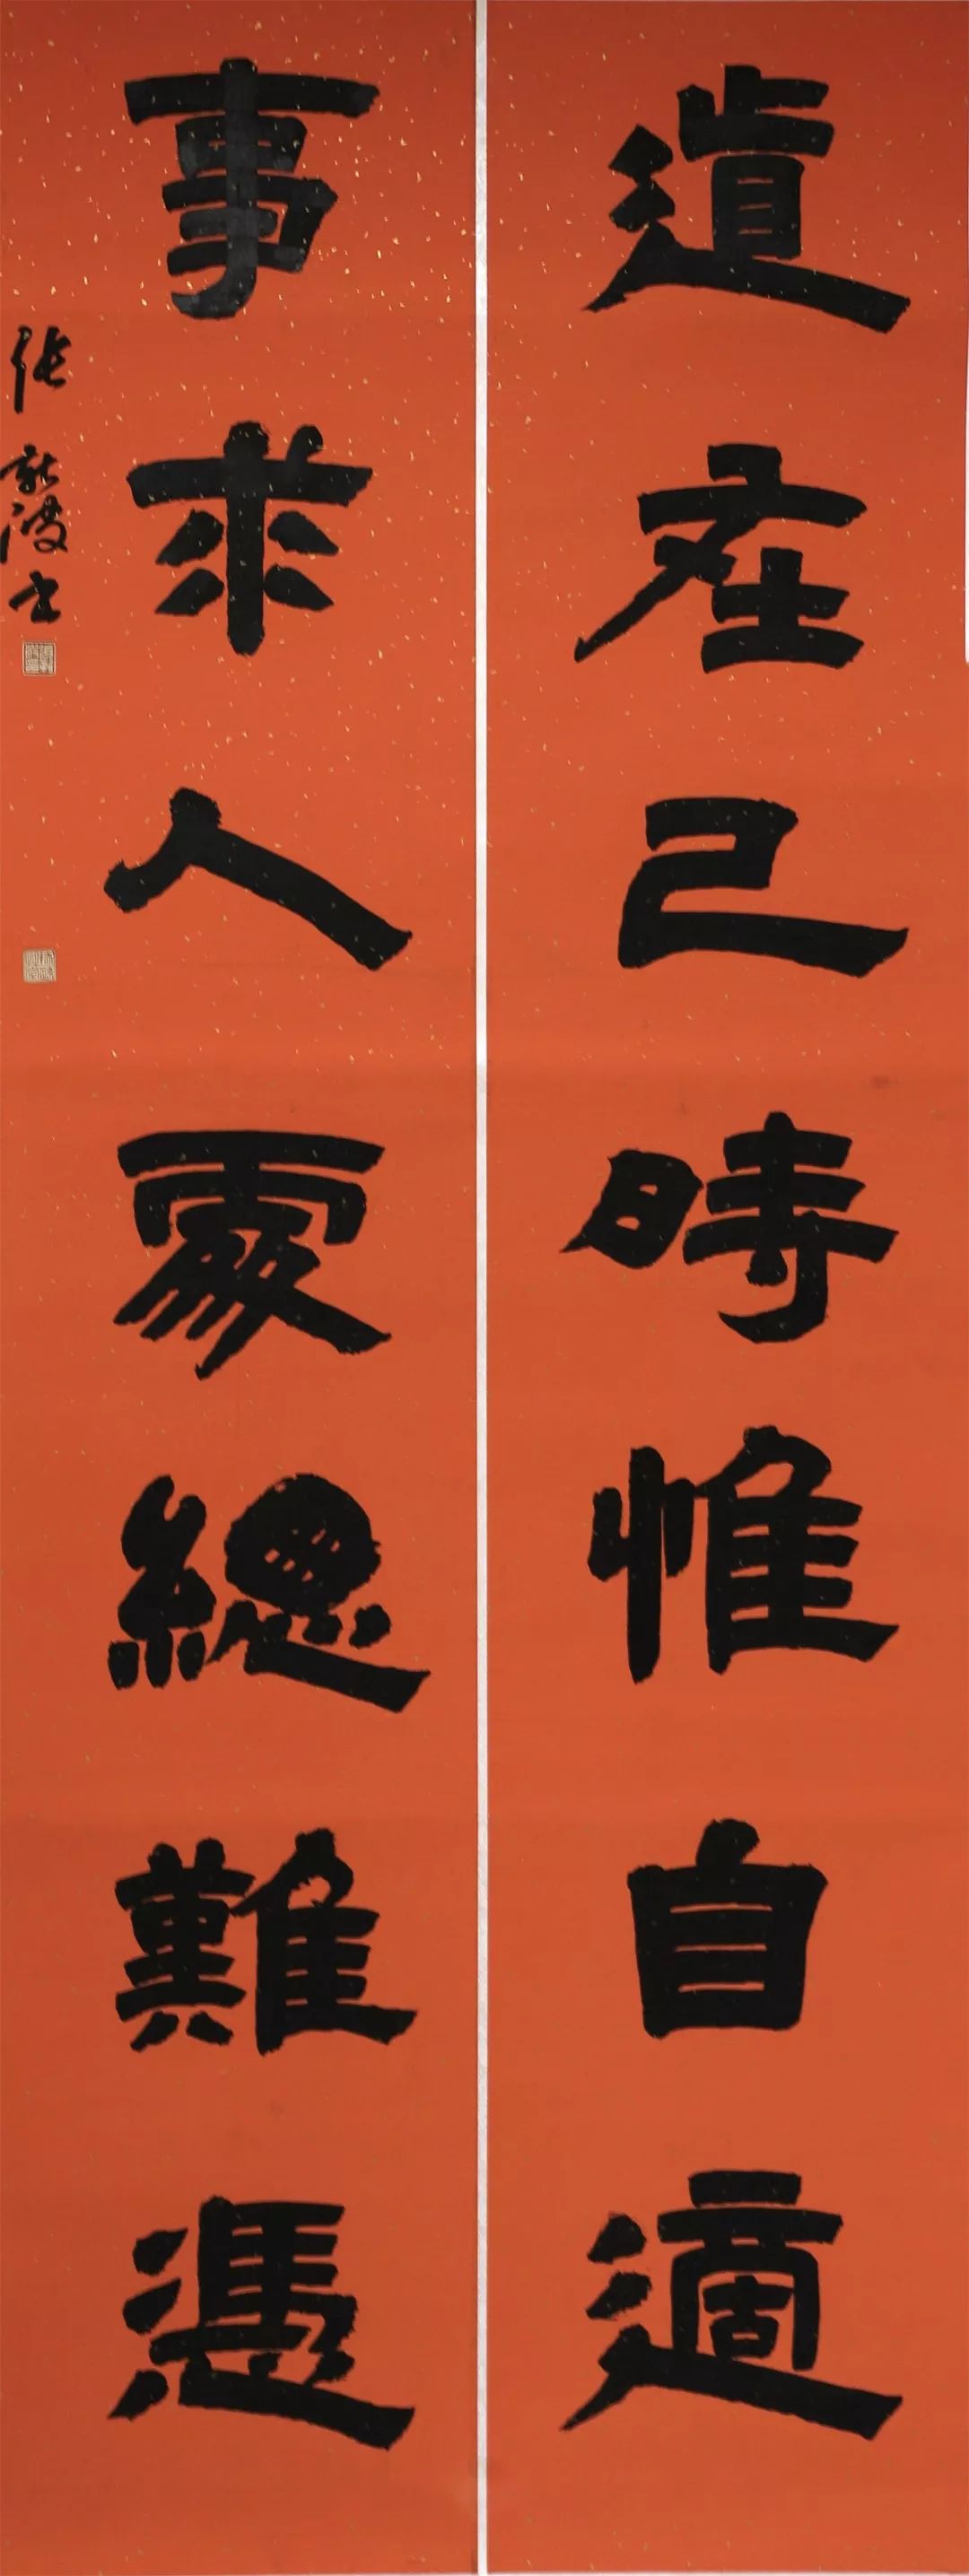 道在己時惟自適
事求人處總難憑
張
書